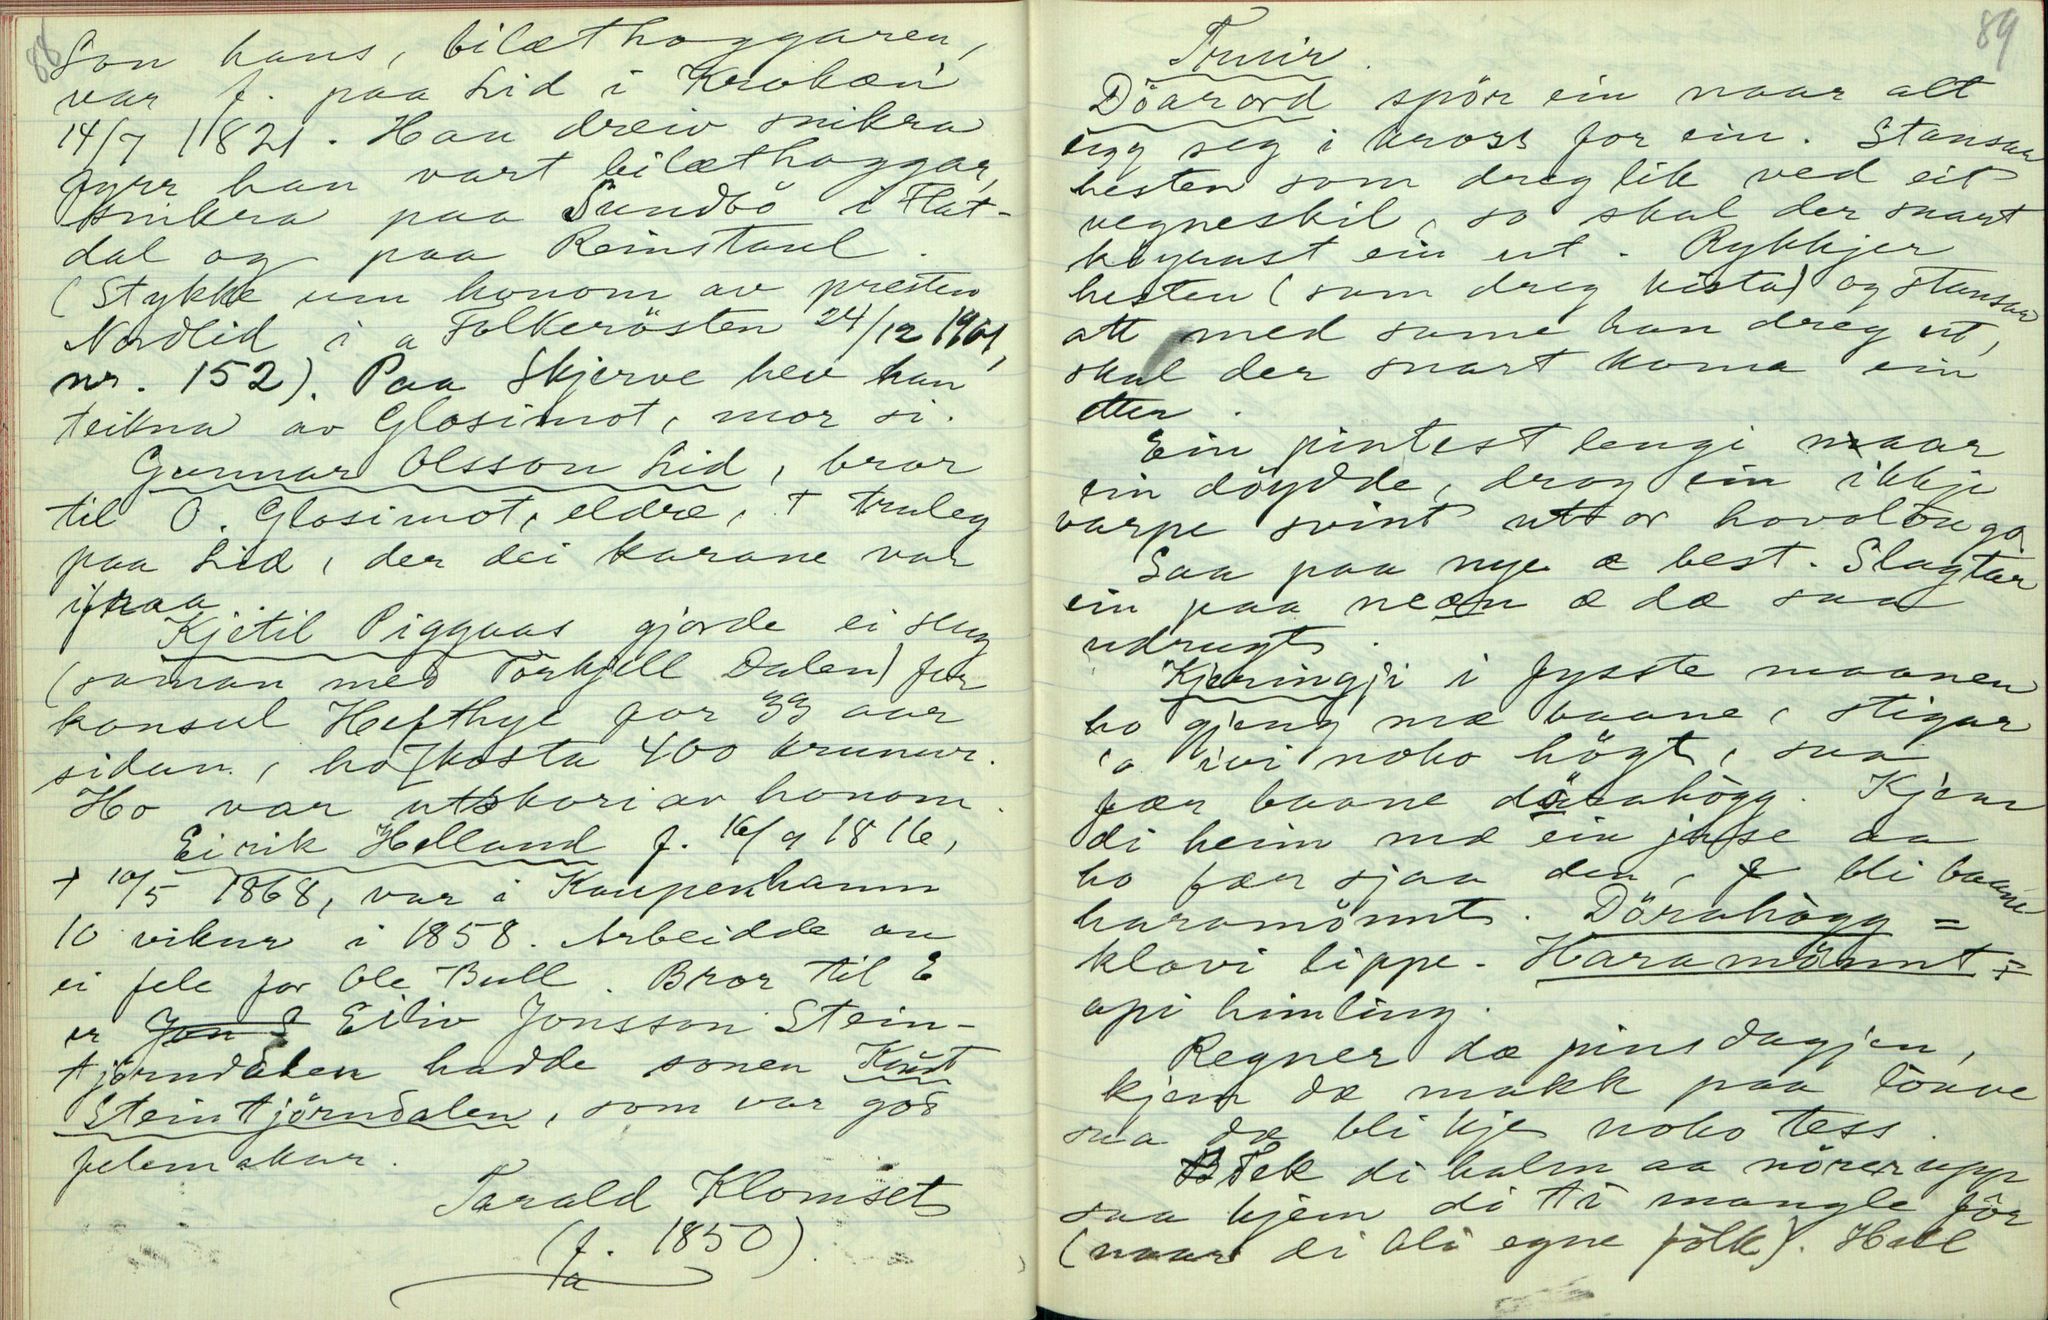 88
Son hans, bilæthoggaren,
var f. paa Lid i Krokæn
14/7 1821. Han dreiv snikra
fyrr han vart bilæthoggar,
snikra paa Sundbö i Flat-
dal og paa Reinstaul.
(Stykke um honom av presten
Nordlid i a Folkerösten 24/12 1901,
nr. 152). Paa Skjerve hev han
teikna av Glosimot, mor si.
Gunnar Olsson Lid, bror
til O. Glosimot, eldre, † truleg
paa Lid, der dei karane var
ifraa
Kjetil Piggaas gjorde ei slug
(saman med Torkjell Dalen) for
konsul Hefthye for 33 aar
sidan, ho kosta 400 krunur.
Ho var utskori av honom.
Eirik Helland f. 16/9 1816,
† 10/5 1868, var i Kaupenhamn
10 vikur i 1858. Arbeidde au
ei fele for Ole Bull. Bror til E
er Jon E Eiliv Jonsson Stein-
tjörndalen hadde sonen Knut
Steintjörndalen, som var god
felemakar.
Tarald Klomset
(f. 1850).
89
Truir.
Döarord spör ein naar alt
legg seg i kross for ein. Stansar
hesten som dreg lik ved eit
vegneskil, so skal der snart
köyrast ein ut. Rykkjer
hesten (som dreg kista) og stansar
alt med same han dreg ut,
skal der snart koma ein
etter.
Ein pintest lengi naar
ein döydde, drog ein ikkje
varpe svint utor hovolduga
Saa paa nye æ best. Slagtar
ein paa neæn æ dæ saa
udrugt.
Kjeringji i fysste maanen
ho gjeng mæ baane, stigar
'o ivi noko högt, saa
fær baane dörahögg. Kjem
di heim mæ ein jase aa
ho fær sjaa den, f bli baane
haramönnt. Dörahögg =
klovi lippe. Haramönnt =
opi himling.
Regner dæ pinsdagjen,
kjem dæ makk paa lauve
saa dæ bli kje noko tess.
B Tek di halm aa nörer upp
saa kjem di ti mangle för
(naar di bli egne fölk). Hell